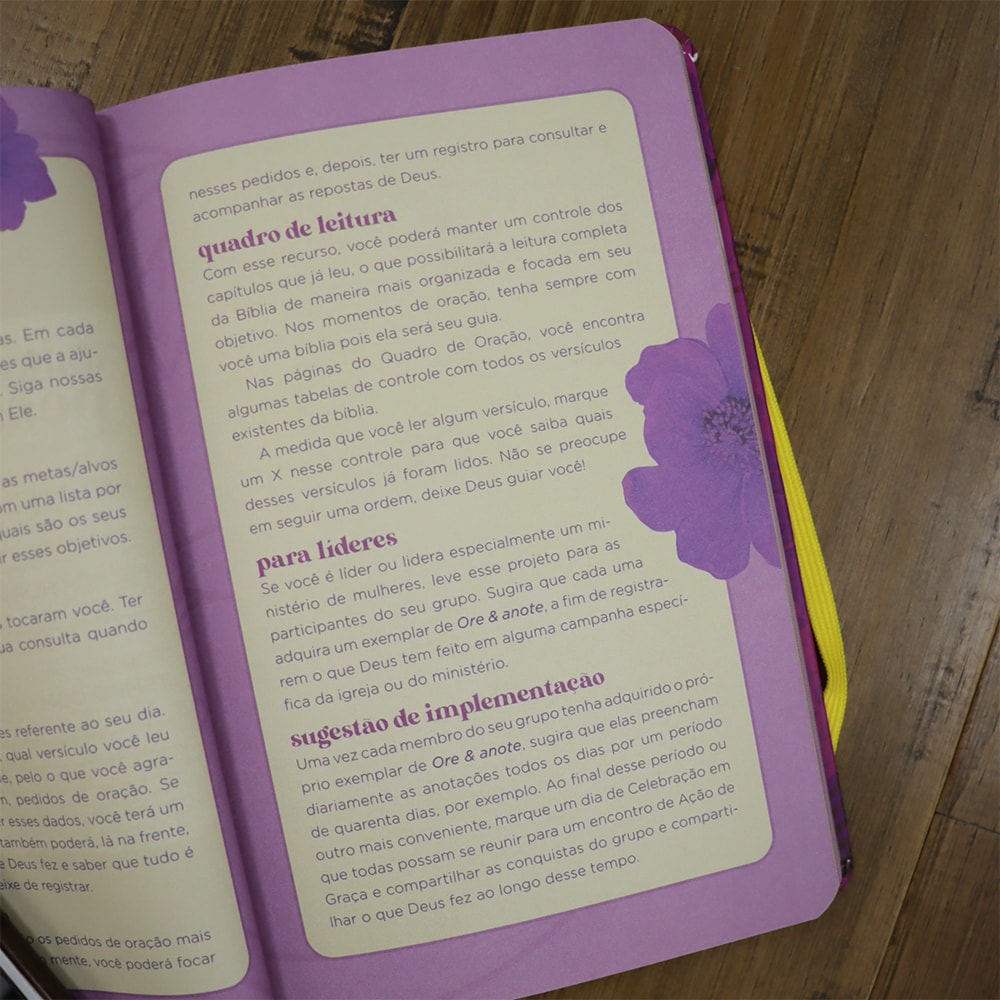 as. Em cada
es que a aju-
. Siga nossas
Ele.
as metas/alvos
om uma lista por
quais são os seus
ir esses objetivos.
tocaram você. Ter
ua consulta quando
es referente ao seu dia.
, qual versículo você leu
e, pelo o que você agra-
m, pedidos de oração. Se
er esses dados, você terá um
também poderá, lá na frente,
e Deus fez e saber que tudo é
eixe de registrar.
o os pedidos de oração mais
mente, você poderá focar
nesses pedidos e, depois, ter um registro para consultar e
acompanhar as repostas de Deus.
quadro de leitura
Com esse recurso, você poderá manter um controle dos
capítulos que já leu, o que possibilitará a leitura completa
da Bíblia de maneira mais organizada e focada em seu
objetivo. Nos momentos de oração, tenha sempre com
você uma bíblia pois ela será seu guia.
Nas páginas do Quadro de Oração, você encontra
algumas tabelas de controle com todos os versículos
existentes da bíblia.
A medida que você ler algum versículo, marque
um X nesse controle para que você saiba quais
desses versículos já foram lidos. Não se preocupe
em seguir uma ordem, deixe Deus guiar você!
para líderes
Se você é líder ou lidera especialmente um mi-
nistério de mulheres, leve esse projeto para as
participantes do seu grupo. Sugira que cada uma
adquira um exemplar de Ore & anote, a fim de registra-
rem o que Deus tem feito em alguma campanha especí-
fica da igreja ou do ministério.
sugestão de implementação
Uma vez cada membro do seu grupo tenha adquirido o pró-
prio exemplar de Ore & anote, sugira que elas preencham
diariamente as anotações todos os dias por um período
de quarenta dias, por exemplo. Ao final desse período ou
outro mais conveniente, marque um dia de Celebração em
que todas possam se reunir para um encontro de Ação de
Graça e compartilhar as conquistas do grupo e comparti-
lhar o que Deus fez ao longo desse tempo.